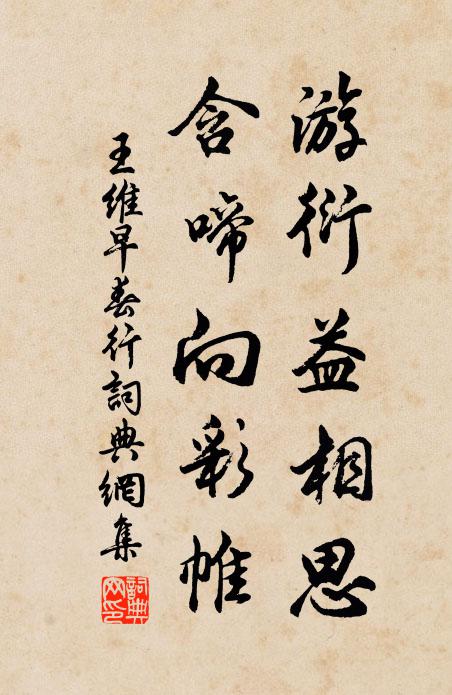 游衍益相思
含啼向彩帷
王維早春行詞典網集
詞典網印